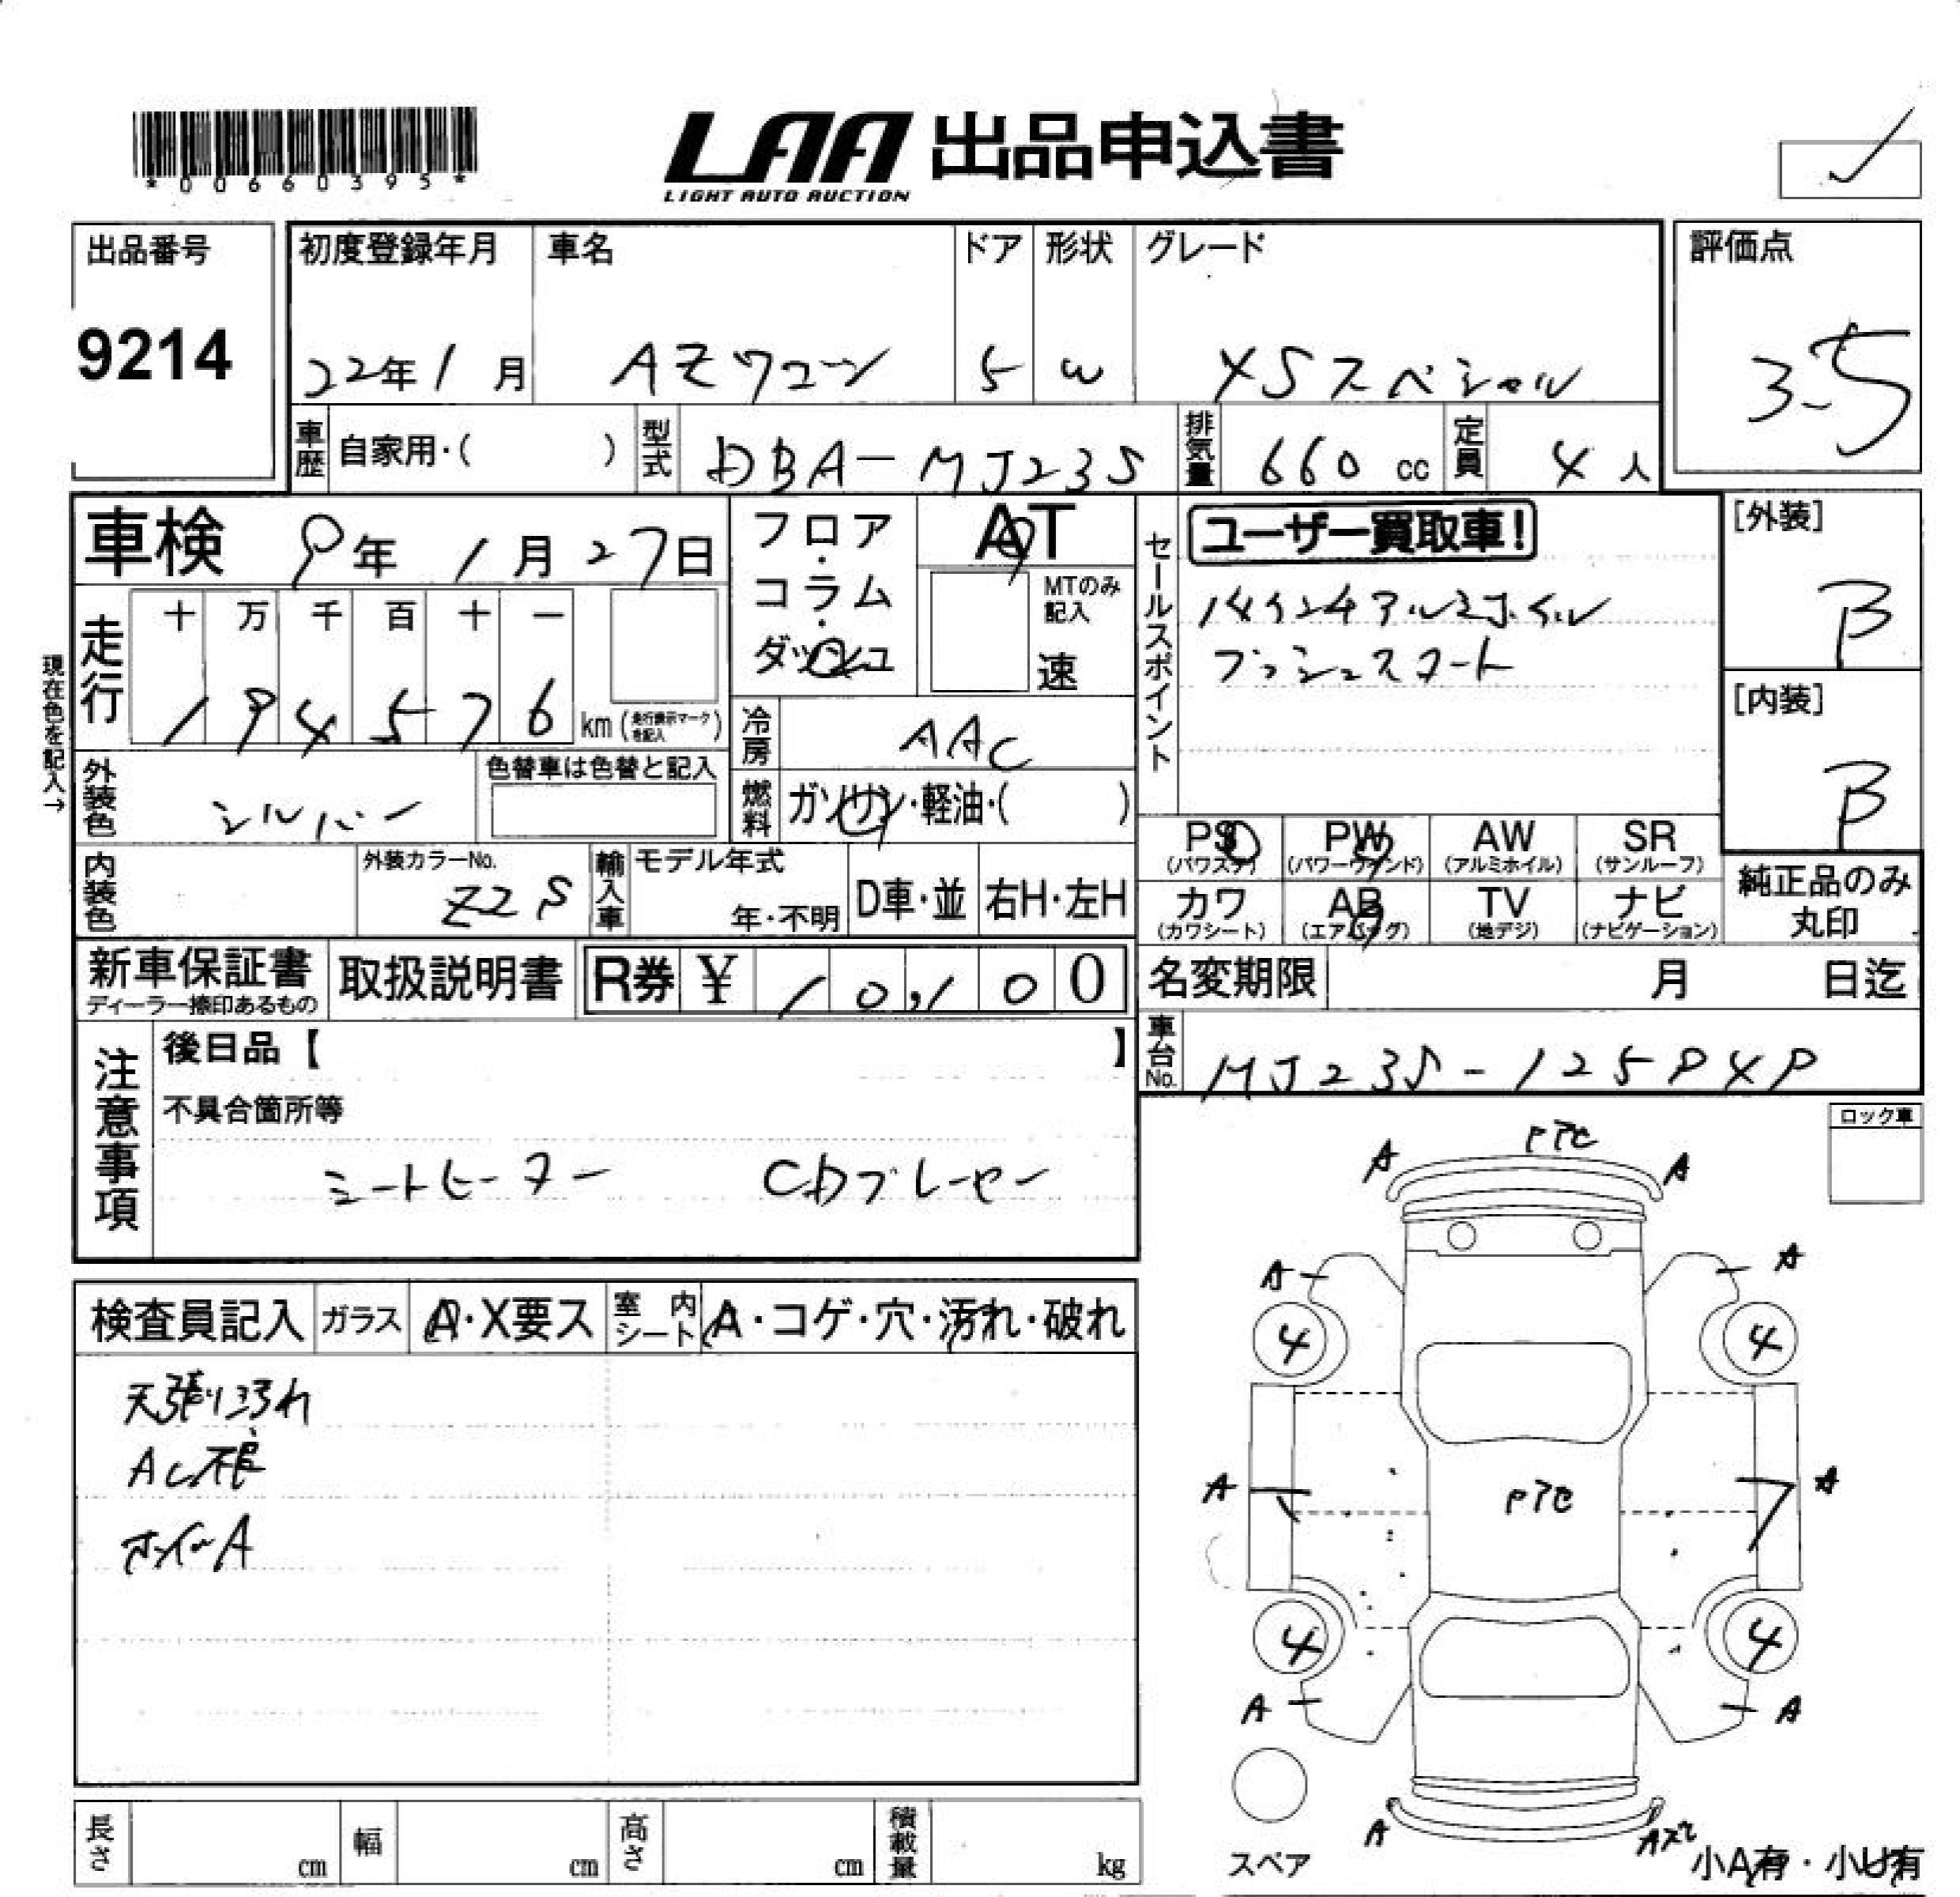 *00660395*
LAA 出品申込書
LIGHT AUTO AUCTION
出品番号
9214
初度登録年月
22年1月
車名
AZワゴン
ドア
5
形状
W
グレード
XSスペシャル
評価点
3.5
車歴
自家用・( )
型式
DBA-MJ23S
排気量
660 cc
定員
4人
車検
9年1月27日
フロア・コラム・ダッシュ
AT
MTのみ記入
速
セールスポイント
ユーザー買取車!
14インチアルミホイル
プッシュスタート
[外装]
B
[内装]
B
現在色を記入→
走行
十 万 千 百 十 一
194576 km (走行表示マークを記入)
冷房
AAC
外装色
シルバー
色替車は色替と記入
燃料
ガソリン・軽油・( )
PS
(パワステ)
PW
(パワーウインド)
AW
(アルミホイル)
SR
(サンルーフ)
カワ
(カワシート)
AB
(エアバッグ)
TV
(地デジ)
ナビ
(ナビゲーション)
純正品のみ
丸印
内装色
外装カラーNo.
Z2S
輸入車
モデル年式
年・不明
D車・並
右H・左H
新車保証書
ディーラー捺印あるもの
取扱説明書
R券 ¥ 10,100
名変期限
月 日迄
車台No.
注意事項
後日品【 】
不具合箇所等
シートヒーター CDプレーヤー
ロック車
検査員記入
ガラス
A・X要ス
室内シート
A・コゲ・穴・汚れ・破れ
天張り汚れ
AC不良
ホイールA
A A
A A
4 4
A A
4 4
A A
A
スペア
小A有・小U有
長さ
cm
幅
cm
高さ
cm
積載量
kg